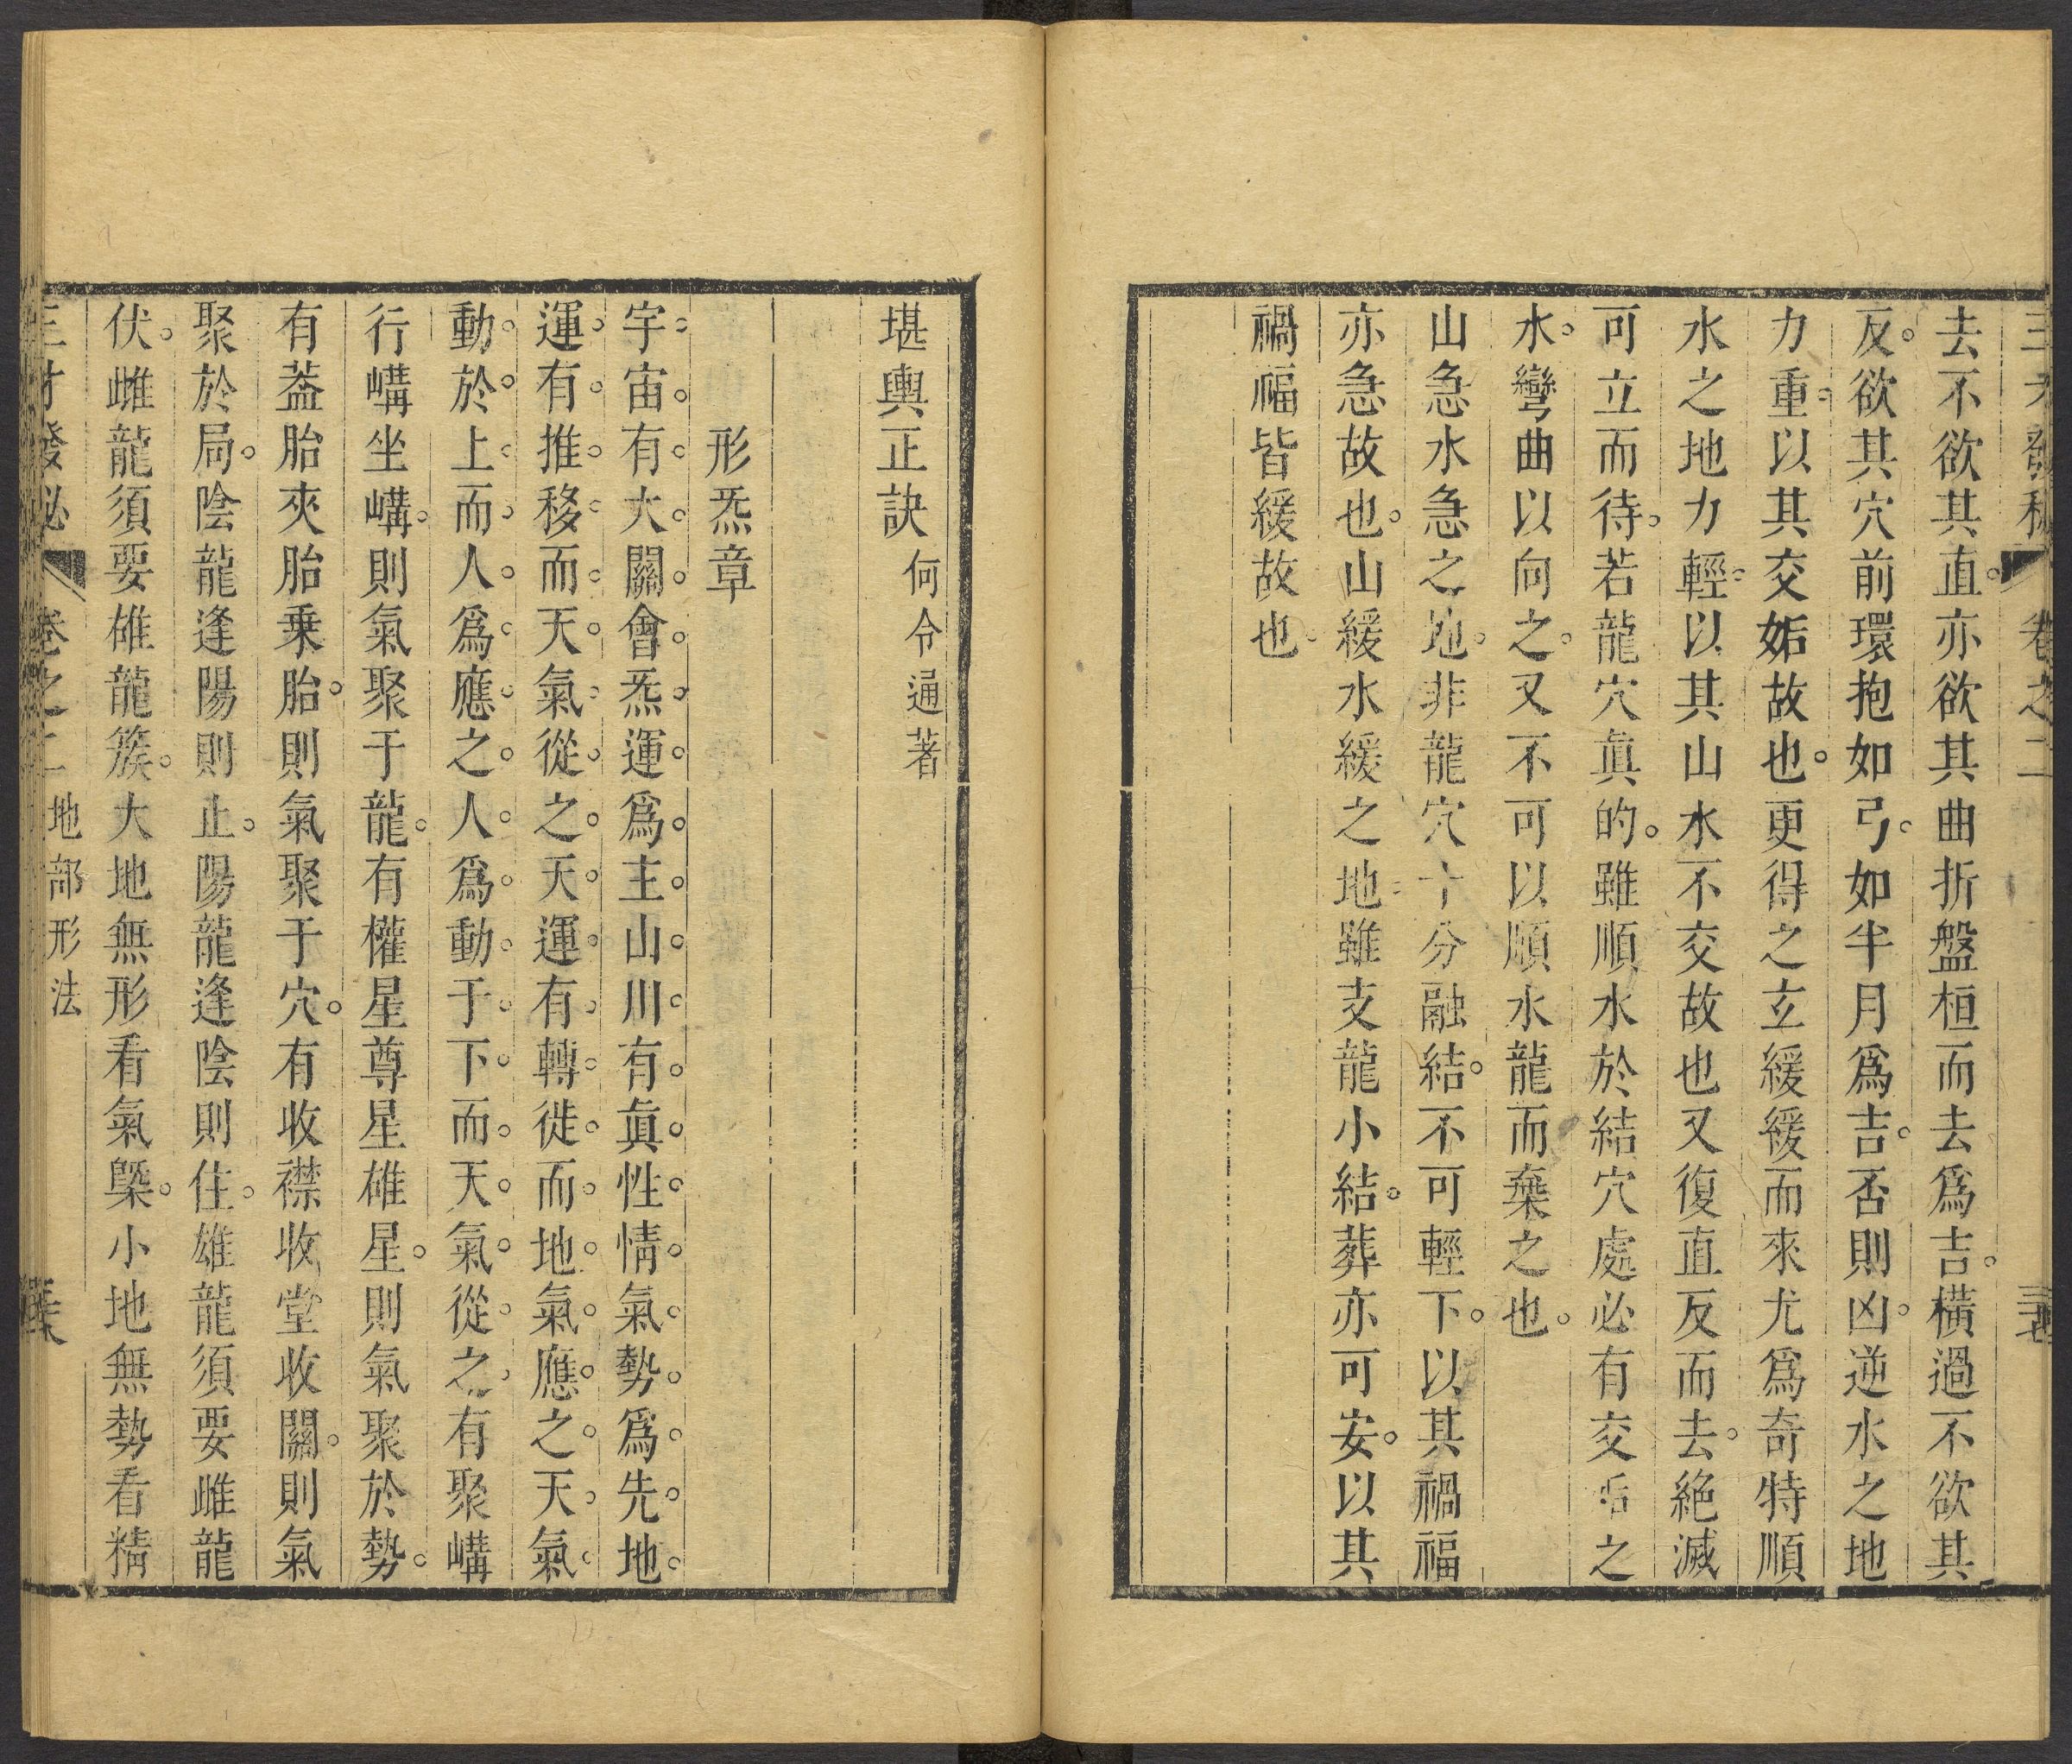 三才發秘 卷之二
去不欲其直。亦欲其曲折盤桓而去爲吉。橫過不欲其
反。欲其穴前環抱如弓。如半月爲吉。否則凶。逆水之地
力重。以其交姤故也。更得之玄緩緩而來尤爲奇特順
水之地力輕。以其山水不交故也又復直反而去。絕滅
可立而待。若龍穴眞的。雖順水於結穴處必有交之
水。彎曲以向之。又不可以順水龍而棄之也。
山急水急之地。非龍穴十分融結。不可輕下。以其禍福
亦急故也。山緩水緩之地雖支龍小結。葬亦可安。以其
禍福皆緩故也。
堪輿正訣 何令通著
形炁章
宇宙。有大關會。炁運爲主。山川有眞性情。氣勢爲先。地
運有推移。而天氣從之。天運有轉徙。而地氣應之。天氣
動於上。而人爲應之。人爲動于下。而天氣從之。有聚嶹
行嶹坐嶹。則氣聚于龍。有權星尊星雄星。則氣聚於勢。
有葢胎夾胎乗胎。則氣聚于穴。有收襟收堂收關。則氣
聚於局。陰龍逢陽則止。陽龍逢陰則住。雄龍須要雌龍
伏。雌龍須要雄龍簇。大地無形看氣槩。小地無勢看精
三才發秘 卷之二 地部形法